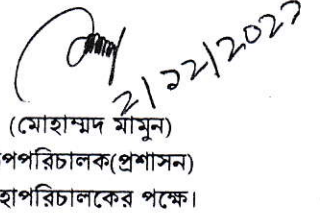 ২/১২/২০২১
(মোহাম্মদ মামুন)
পপরিচালক(প্রশাসন)
হাপরিচালকের পক্ষে।